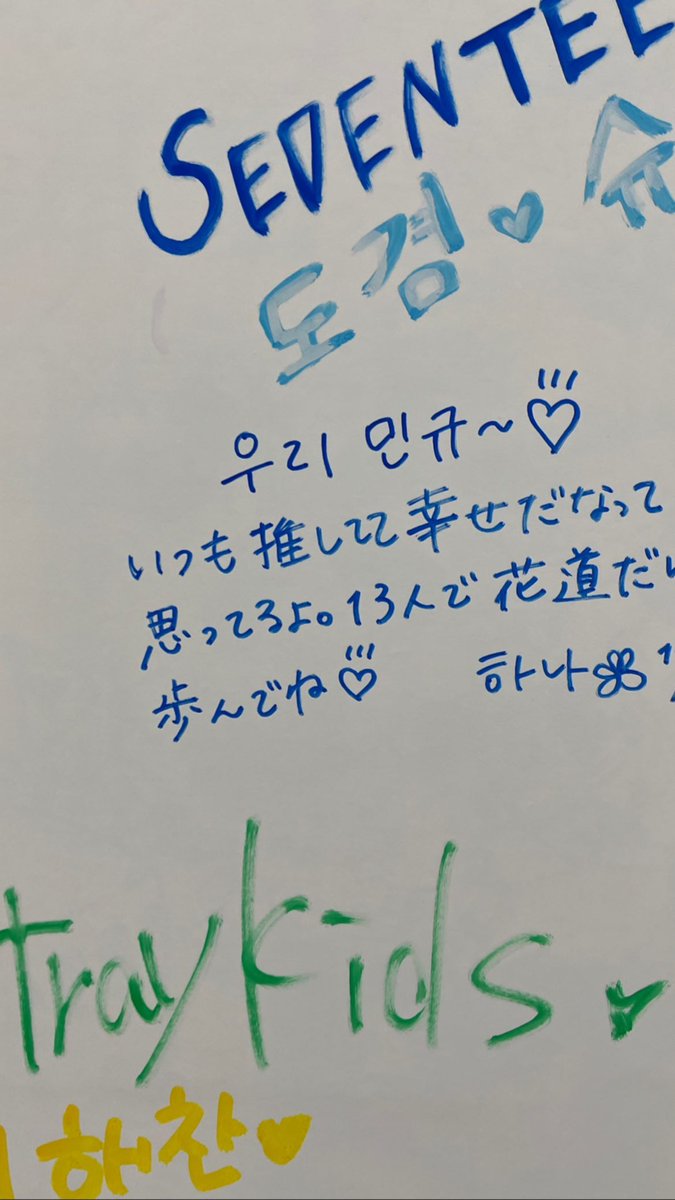 SEDENTEE
도경♥슈
우리 민규~♡
いつも推してて幸せだなって
思ってるよ。13人で花道だけ
歩んでね♡
하나
traykids♥
해찬♥